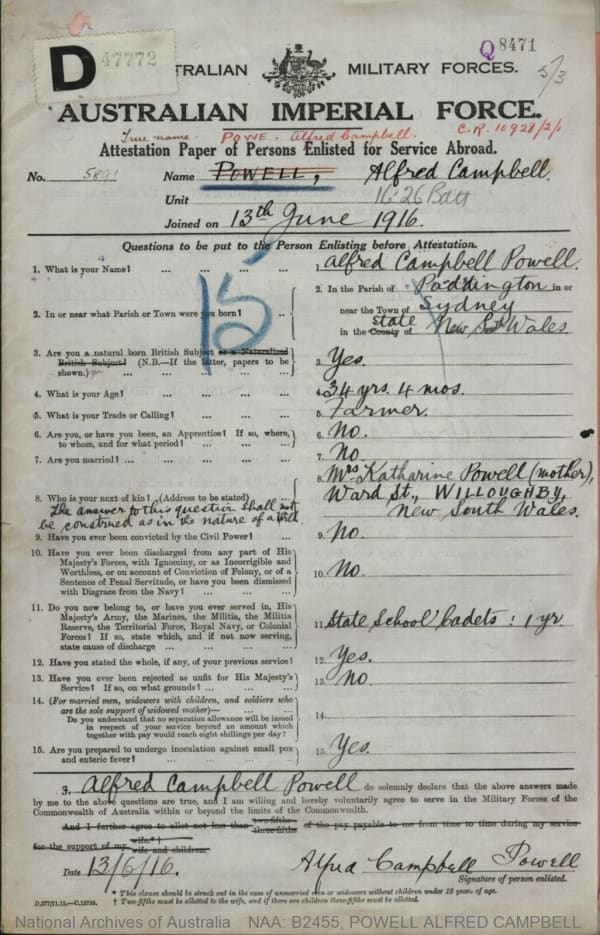 D 47772
Q 8471
5/3
TRALIAN MILITARY FORCES.
AUSTRALIAN IMPERIAL FORCE.
True name. POWE. Alfred Campbell. C.R. 10928/2/1
Attestation Paper of Persons Enlisted for Service Abroad.
No. 5891 Name POWELL, Alfred Campbell.
Unit 16.26 Batt
Joined on 13th June 1916.
Questions to be put to the Person Enlisting before Attestation.
15
1. What is your Name? ... ... ... ... 1. Alfred Campbell Powell.
2. In or near what Parish or Town were you born? .. 2. In the Parish of Paddington in or
near the Town of Sydney
in the County of state New South Wales
3. Are you a natural born British Subject or a Naturalized
British Subject? (N.B.—If the latter, papers to be
shown.) ... ... ... ... 3. Yes.
4. What is your Age? ... ... ... ... 4. 34 yrs. 4 mos.
5. What is your Trade or Calling? ... ... ... 5. Farmer.
6. Are you, or have you been, an Apprentice? If so, where,
to whom, and for what period? ... ... ... 6. No.
7. Are you married? ... ... ... ... ... 7. No.
8. Who is your next of kin? (Address to be stated) ... 8. Mrs Katharine Powell (mother),
Ward St., WILLOUGHBY,
New South Wales.
The answer to this question shall not
be construed as in the nature of a Will.
9. Have you ever been convicted by the Civil Power? ... 9. No.
10. Have you ever been discharged from any part of His
Majesty's Forces, with Ignominy, or as Incorrigible and
Worthless, or on account of Conviction of Felony, or of a
Sentence of Penal Servitude, or have you been dismissed
with Disgrace from the Navy? ... ... ... 10. No.
11. Do you now belong to, or have you ever served in, His
Majesty's Army, the Marines, the Militia, the Militia
Reserve, the Territorial Force, Royal Navy, or Colonial
Forces? If so, state which, and if not now serving,
state cause of discharge ... ... ... ... 11. State School Cadets : 1 yr.
12. Have you stated the whole, if any, of your previous service? 12. Yes.
13. Have you ever been rejected as unfit for His Majesty's
Service? If so, on what grounds? ... ... ... 13. No.
14. (For married men, widowers with children, and soldiers who
are the sole support of widowed mother)—
Do you understand that no separation allowance will be issued
in respect of your service beyond an amount which
together with pay would reach eight shillings per day? 14.
15. Are you prepared to undergo inoculation against small pox
and enteric fever? ... ... ... ... 15. Yes.
I, Alfred Campbell Powell do solemnly declare that the above answers made
by me to the above questions are true, and I am willing and hereby voluntarily agree to serve in the Military Forces of the
Commonwealth of Australia within or beyond the limits of the Commonwealth.
And I further agree to allot not less than two-fifths three-fifths of the pay payable to me from time to time during my service
for the support of my wife.* † wife and children.
Date 13/6/16. Alfred Campbell Powell
Signature of person enlisted.
* This clause should be struck out in the case of unmarried men or widowers without children under 18 years of age.
† Two-fifths must be allotted to the wife, and if there are children three-fifths must be allotted.
D.277/11.15.—C.13759.
National Archives of Australia NAA: B2455, POWELL ALFRED CAMPBELL